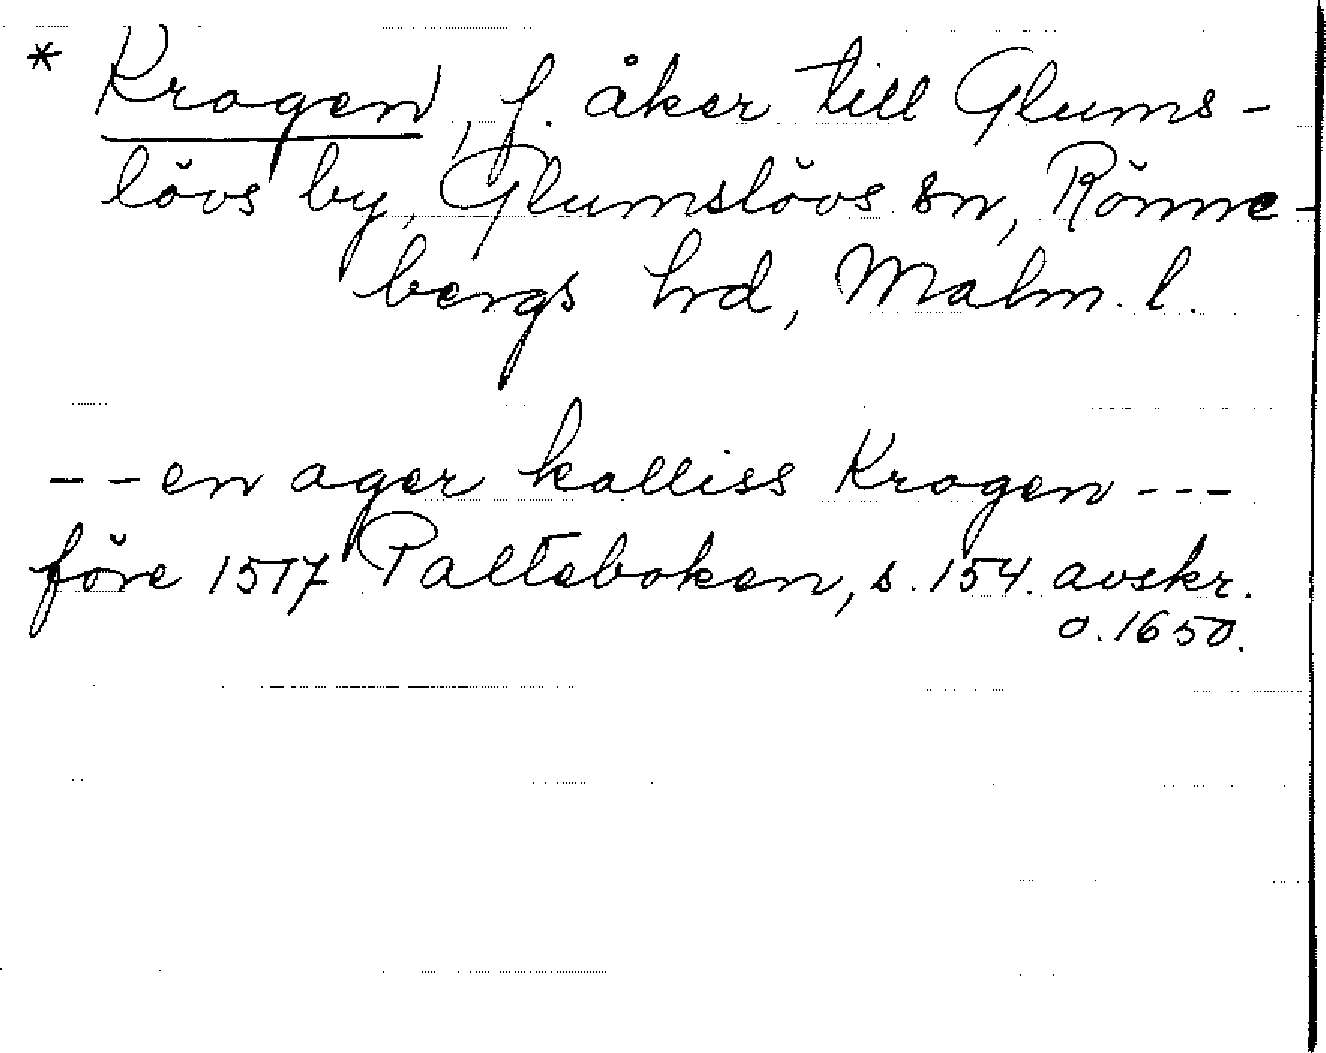 * Krogen, f. åker till Glums-
lövs by, Glumslövs sn, Rönne-
bergs hrd, Malm. l.
-- en ager kalliss Krogen ---
före 1517 Palteboken, s. 154. avskr.
o. 1650.